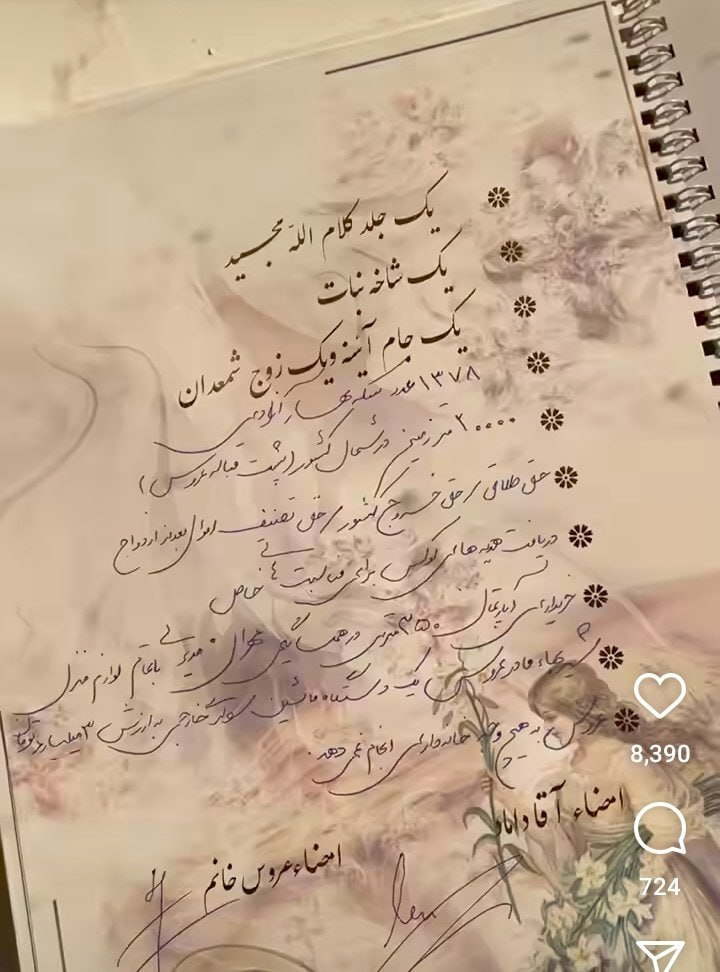 یک جلد کلام الله مجید
یک شاخه نبات
یک جام آئینه و یک زوج شمعدان
۱۳۷۸ عدد سکه بهار آزادی
۲۰۰۰۰ متر زمین در شمال کشور (پشت قباله عروس)
حق طلاق / حق خروج کشور / حق تصنیف اموال بعد از ازدواج
دریافت هدیه های لوکس برای مناسبت های خاص
خریداری آپارتمان ۳۵۰ متری در تهران با تمام لوازم منزل
شیربهاء مادر عروس یک دستگاه ماشین سواری خارجی به ارزش ۳ میلیارد تومان
عروس به هیچ وجه خانه داری انجام نمی دهد.
امضاء آقا داماد
امضاء عروس خانم
8,390
724